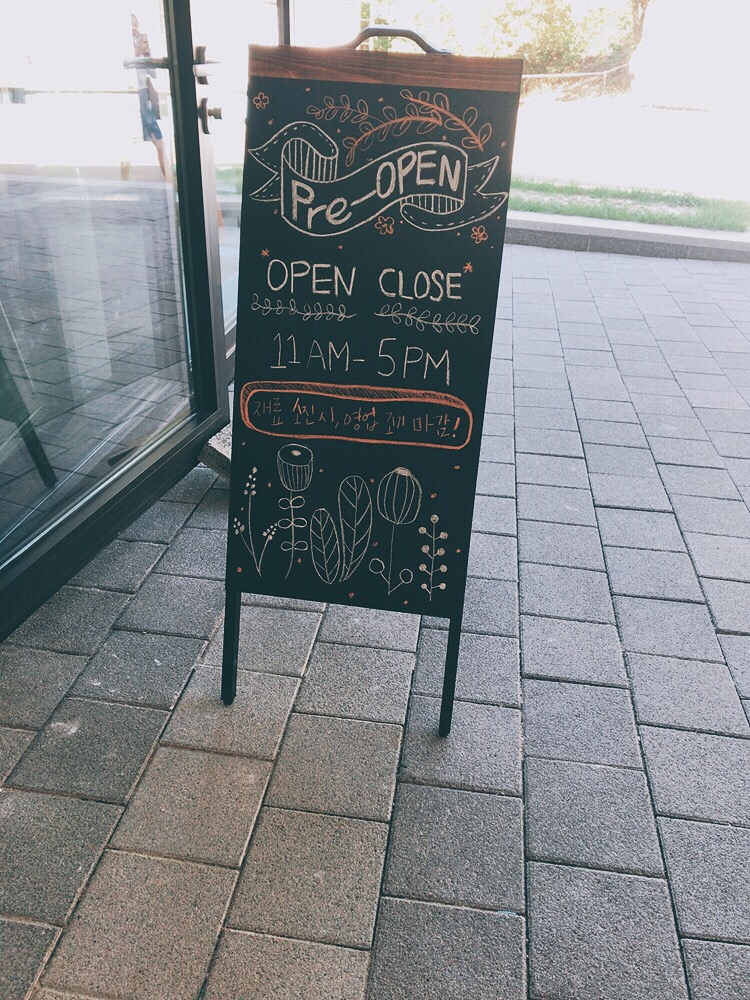 Pre-OPEN
OPEN CLOSE
11AM-5PM
재료 소진 시, 영업 조기 마감!